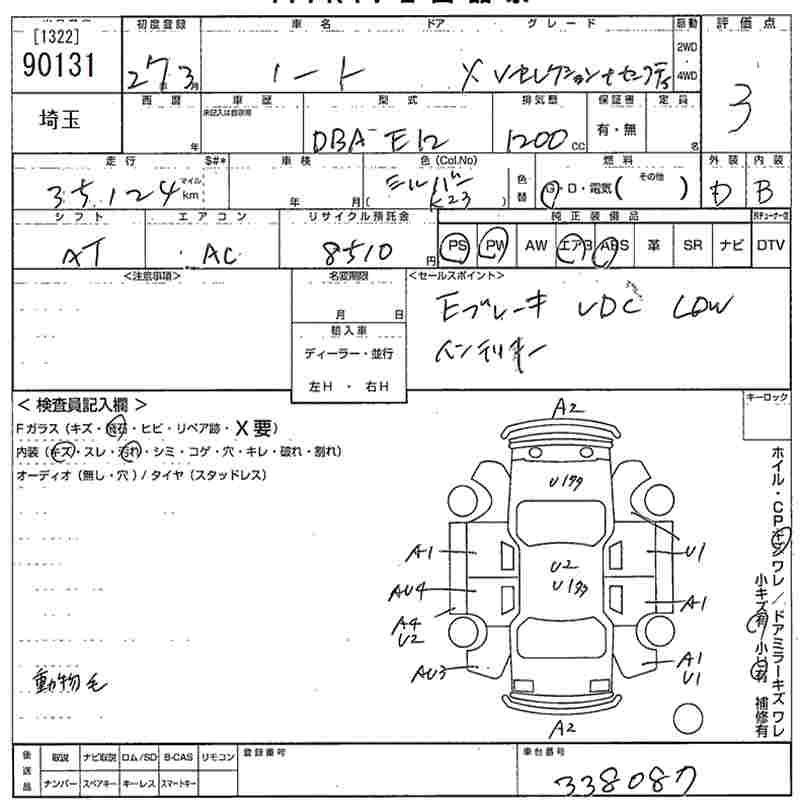 [1322]
90131
初度登録
27年3月
車名
ノート
ドア
グレード
X Vセレクション+セーフティ
駆動
2WD
4WD
評価点
3
埼玉
西暦
年
車歴
未記入は自家用
型式
DBA-E12
排気量
1200 CC
保証書
有・無
定員
名
走行
35,124 マイル km
S#*
車検
年 月
色(Col.No)
シルバー
( K23 )
色替
燃料
G・D・電気( その他 )
外装
D
内装
B
シフト
AT
エアコン
AC
リサイクル預託金
8510 円
純正装備品
PS PW AW エアB ABS 革 SR ナビ DTV
<注意事項>
名変期限
月 日
輸入車
ディーラー・並行
左H・右H
<セールスポイント>
Eブレーキ VDC LOW
インテリキー
<検査員記入欄>
Fガラス(キズ・飛石・ヒビ・リペア跡・X要)
内装(キズ・スレ・汚れ・シミ・コゲ・穴・キレ・破れ・割れ)
オーディオ(無し・穴)/タイヤ(スタッドレス)
動物毛
キーロック
A2
A1
U1
U2
AU4
A1
A4
U2
AU3
A1
U1
A2
ホイル・CPキズワレ/ドアミラーキズワレ
小キズ有・小凹有 補修有
後送品
取説 ナビ取説 ロム/SD B-CAS リモコン
ナンバー スペアキー キーレス スマートキー
登録番号
車台番号
338087